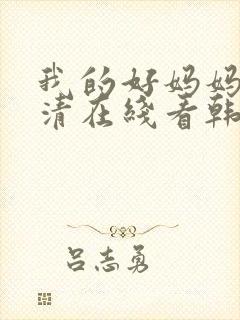 我的好妈妈
清在线看韩
吕志勇